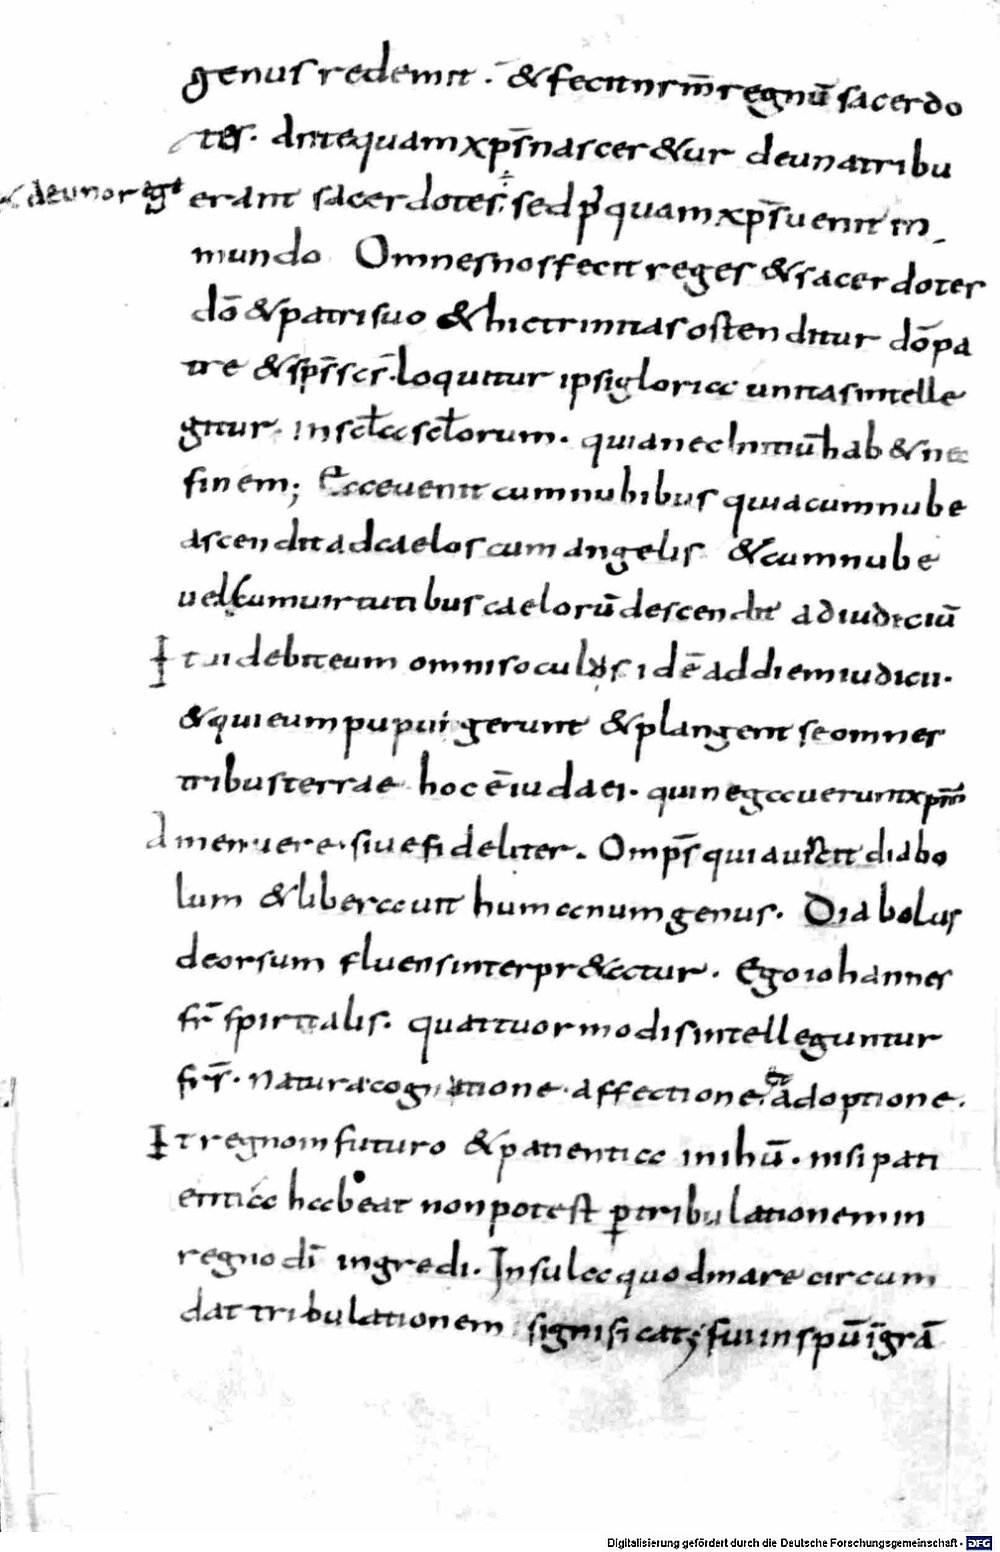 genus redemit. & fecit nrm̄ regnū sacerdo
tes. Antequam xp̄s nascer&ur de una tribu
& de uno rege erant sacerdotes; sed p̄ quam xp̄s uenit in
mundo Omnes nos fecit reges & sacerdotes
dō & patri suo & hic trinitas ostenditur dō pa
tre & sp̄s scs̄. loquitur ipsi gloria unitas intelle
gitur. In scła scłorum. quia nec Initiū hab& nec
finem; Ecce uenit cum nubibus quia cum nube
ascendit ad caelos cum angelis & cum nube
uel cum uirtutibus caelorū descendit ad iudiciū
It uidebit eum omnis oculus id ē ad diem iudicii.
& qui eum pupuigerunt & plangent se omnes
tribus terrae hoc ē iudaei. qui negauerunt xp̄m
Amen uere. siue fideliter. Omp̄s qui auictit diabo
lum & liberauit humanum genus. Diabolus
deorsum fluens interpr&atur. Ego iohannes
fr̄ spiritalis. quattuor modis intelleguntur
frs̄. natura cognatione. affectione. & adoptione.
It regno in futuro & patientia in ihū. nisi pati
entia habeat non potest p tribulationem in
regno dī ingredi. Insula quod mare circum
dat tribulationem significat; fui in spū ī grā
Digitalisierung gefördert durch die Deutsche Forschungsgemeinschaft - DFG